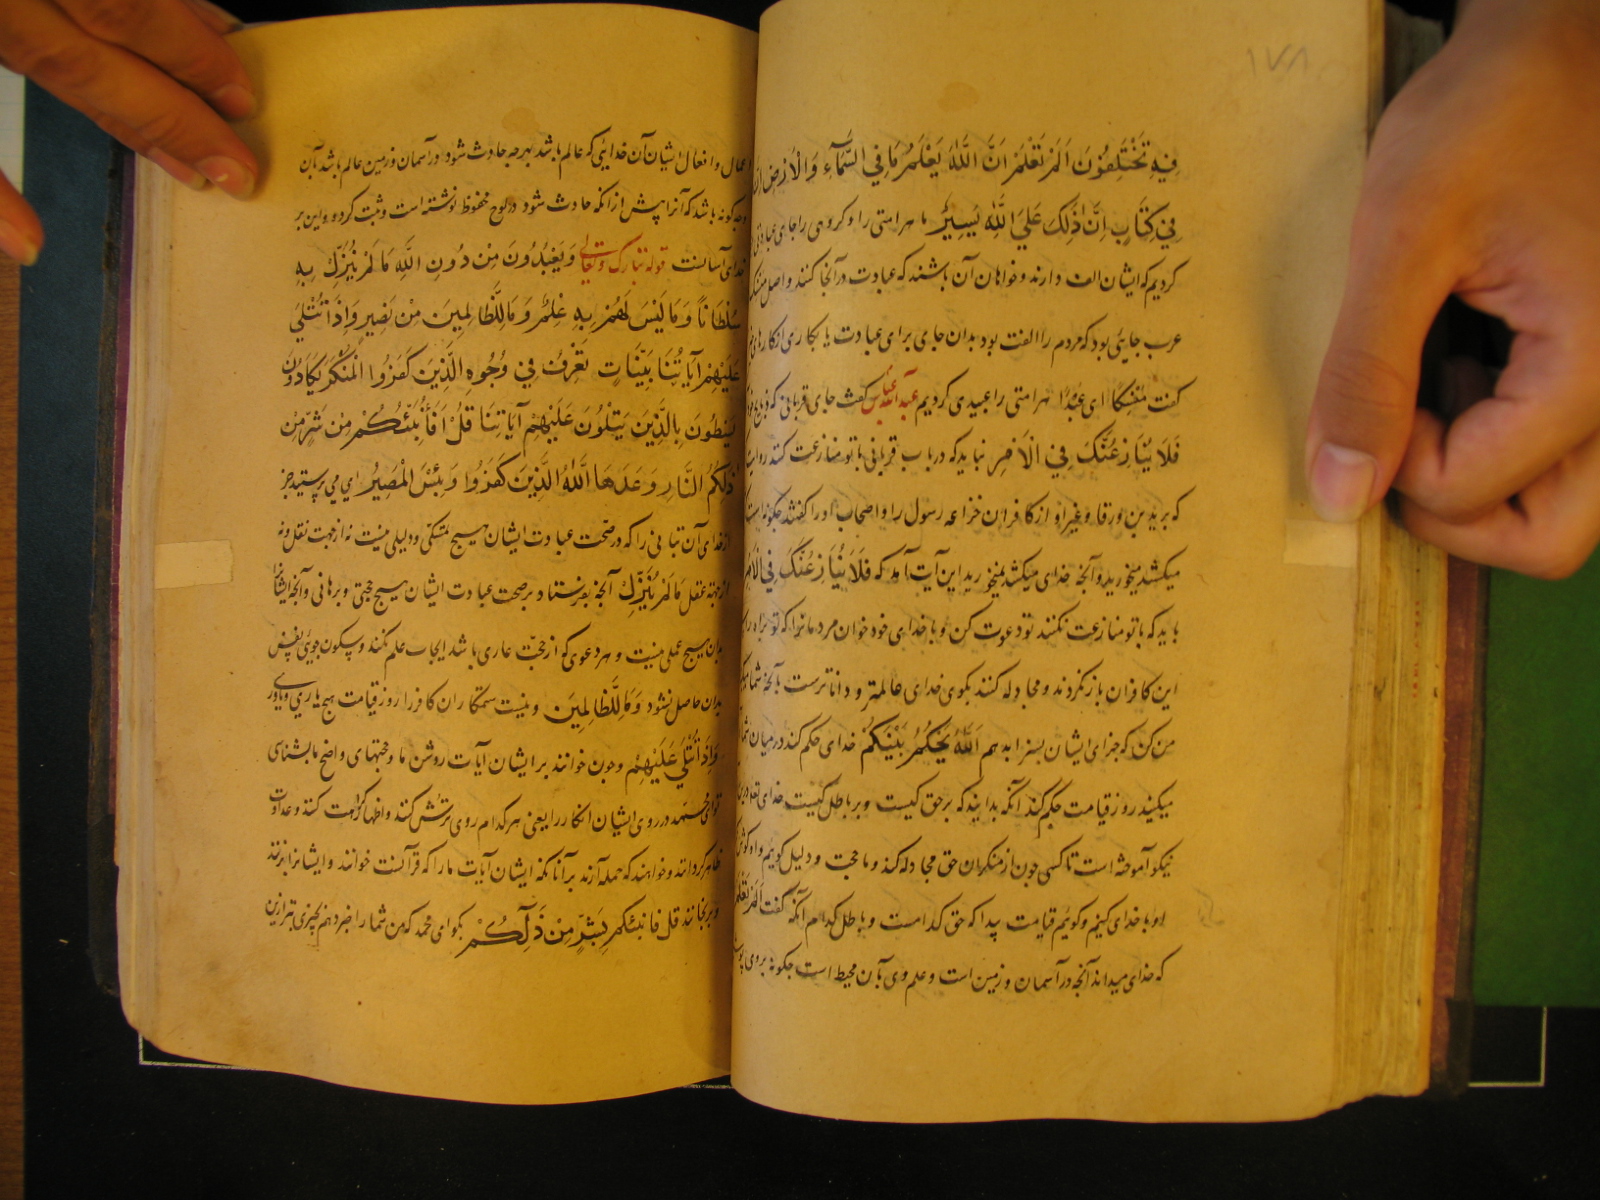 ۱۷۸
فِيهِ تَخْتَلِفُونَ اَلَمْ تَعْلَمْ اَنَّ اللّٰهَ يَعْلَمُ مَا فِي السَّمَآءِ وَالْاَرْضِ اِنَّ
فِي كِتَابٍ اِنَّ ذٰلِكَ عَلَيَ اللّٰهِ يَسِيرٌ ما هر امتی را و کروهی را جای
کردیم که ایشان الف دارند و خواهان آن باشند که عبادت در آنجا کنند و اصل منسک
عرب جایی بود که مردم را الفت بود بدان جای برای عبادت یا بکاری از کارهای
کفت مَنْسَكًا ای عیدًا هر امتی را عیدی کردیم عبدالله عباس کفت جای قربانی که
فَلَا يُنَازِعُنَّكَ فِي الْاَمْرِ نباید که در باب قربانی با تو منازعت کنند
که بریذ بن ورقا و غیر او از کافران خزاعه رسول را و اصحاب او را کفتند چکونه است
میکشید میخورید و آنچه خدای میکشد نمیخورید این آیت آمد که فَلَا يُنَازِعُنَّكَ فِي الْاَمْرِ
باید که با تو منازعت نکنند تو دعوت کن و با خدای خود خوان مردمانرا که تو بر راه
این کافران باز نکردند و مجادله کنند بکوی خدای عالمتر و داناترست بآنچه شما
من کن که جزای ایشان بسزا بدهم اَللّٰهُ يَحْكُمُ بَيْنَكُمْ خدای حکم کند در میان شما
میکنید روز قیامت حکم کند آنکه بدانید که بر حق کیست و بر باطل کیست خدای تعالی
نیکو آموخته است تا کسی چون از منکران حق مجادله کند و ما حجت و دلیل کوییم و او
او با خدای کنیم و کوییم قیامت پیدا که حق کدامست و باطل کدام آنکه کفت اَلَمْ تَعْلَمْ
که خدای میداند آنچه در آسمان و زمین است و علم وی بآن محیط است چکونه بروی
اعمال و افعال ایشان آن خدایی که عالم باشد بهر چه حادث شود در آسمان و زمین عالم باشد بآن
وجه کونه باشد که آنرا پیش از آنکه حادث شود در لوح محفوظ نوشته است و ثبت کرده و این بر
خدای آسانست قوله تبارک و تعالی وَيَعْبُدُونَ مِنْ دُونِ اللّٰهِ مَا لَمْ يُنَزِّلْ بِهِ
سُلْطَانًا وَمَا لَيْسَ لَهُمْ بِهِ عِلْمٌ وَمَا لِلظَّالِمِينَ مِنْ نَصِيرٍ وَاِذَا تُتْلَيٰ
عَلَيْهِمْ آيَاتُنَا بَيِّنَاتٍ تَعْرِفُ فِي وُجُوهِ الَّذِينَ كَفَرُوا الْمُنْكَرَ يَكَادُونَ
يَسْطُونَ بِالَّذِينَ يَتْلُونَ عَلَيْهِمْ آيَاتِنَا قُلْ اَفَاُنَبِّئُكُمْ بِشَرٍّ مِنْ
ذٰلِكُمُ النَّارُ وَعَدَهَا اللّٰهُ الَّذِينَ كَفَرُوا وَبِئْسَ الْمَصِيرُ ای می پرستید جز
از خدای آن بتانی را که در صحت عبادت ایشان هیچ متمسکی و دلیلی نیست نه از جهت نقل و نه
از جهة عقل مَا لَمْ يُنَزِّلْ آنچه نفرستاد بر صحت عبادت ایشان هیچ حجتی و برهانی و آنچه ایشانرا
بدان هیچ علمی نیست و هر دعوی که از حجت عاری باشد ایجاب علم نکند و سکون
بدان حاصل نشود وَمَا لِلظَّالِمِينَ و نیست ستمکاران کافر را روز قیامت هیچ یاری و یاور
وَاِذَا تُتْلَيٰ عَلَيْهِمْ و چون خوانند بر ایشان آیات روشن ما و حجتهای واضح ما بشناسی
تو ای محمد در روی ایشان انکار را یعنی هر کدام روی ترش کنند و اظهار کراهت کنند و عداوت
ظاهر کردانند و خواهند که حمله آرند بر آنانکه ایشان آیات ما را که قرآنست خوانند و ایشانرا بزنند
و برنجانند قل فانبئکم بِشَرٍّ مِنْ ذٰلِكُمْ بکو ای محمد که من شما را خبر دهم بچیزی بتر ازین